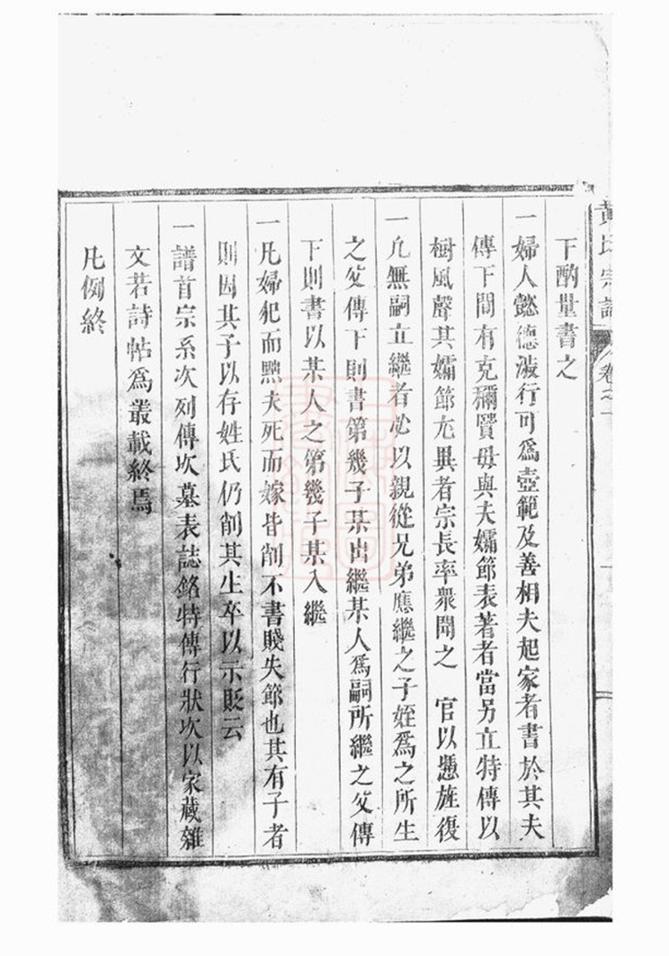 黃氏宗譜 卷之一
下酌量書之
一婦人懿德淑行可為壼範及善相夫起家者書於其夫
傳下間有克稱賢母與夫孀節表著者當另立特傳以
樹風聲其孀節尤異者宗長率衆聞之 官以懇旌復
一凡無嗣立繼者必以親從兄弟應繼之子姪為之所生
之父傳下則書第幾子某出繼某人為嗣所繼之父傳
下則書以某人之第幾子某入繼
一凡婦犯而黜夫死而嫁皆削不書賤失節也其有子者
則因其子以存姓氏仍削其生卒以示貶云
一譜首宗系次列傳次墓表誌銘特傳行狀次以家藏雜
文若詩帖為叢載終焉
凡例終